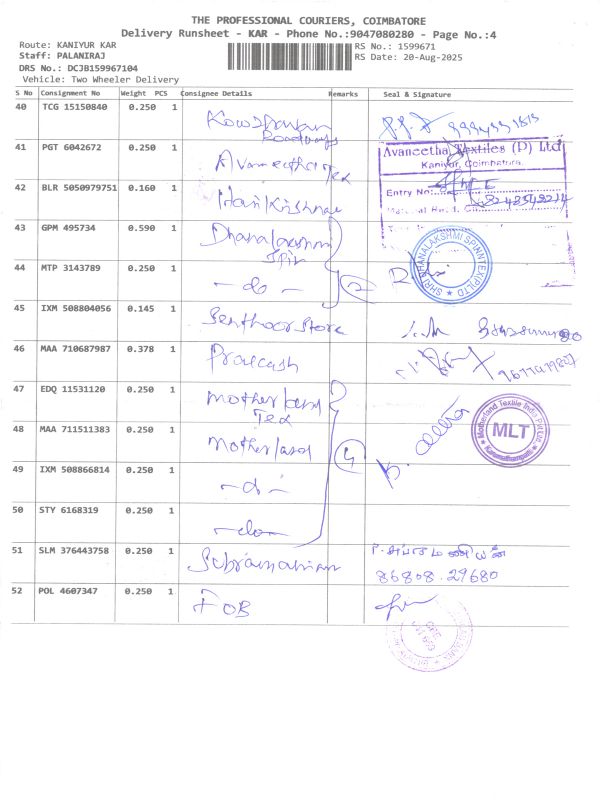 THE PROFESSIONAL COURIERS, COIMBATORE
Delivery Runsheet - KAR - Phone No.:9047080280 - Page No.:4
Route: KANIYUR KAR
RS No.: 1599671
Staff: PALANIRAJ
RS Date: 20-Aug-2025
DRS No.: DCJB159967104
Vehicle: Two Wheeler Delivery
S No Consignment No Weight PCS Consignee Details Remarks Seal & Signature
40 TCG 15150840 0.250 1
41 PGT 6042672 0.250 1 Avaneetha Tex
Avaneetha Textiles (P) Ltd
Kaniyur, Coimbatore.
42 BLR 5050979751 0.160 1 Hari Krishna
Entry No:
43 GPM 495734 0.590 1 Dhanalakshmi
Spin
44 MTP 3143789 0.250 1 - do - 2
SHRI DHANALAKSHMI SPINNTEX (P) LTD
45 IXM 508804056 0.145 1 Senthoor Store
46 MAA 710687987 0.378 1 Prakash
47 EDQ 11531120 0.250 1 Motherland
Tex
Motherland Textile India Pvt Ltd
MLT
48 MAA 711511383 0.250 1 Motherland 4
49 IXM 508866814 0.250 1 - do -
50 STY 6168319 0.250 1 - do -
51 SLM 376443758 0.250 1 Subramanian
86808.29680
52 POL 4607347 0.250 1 FOB